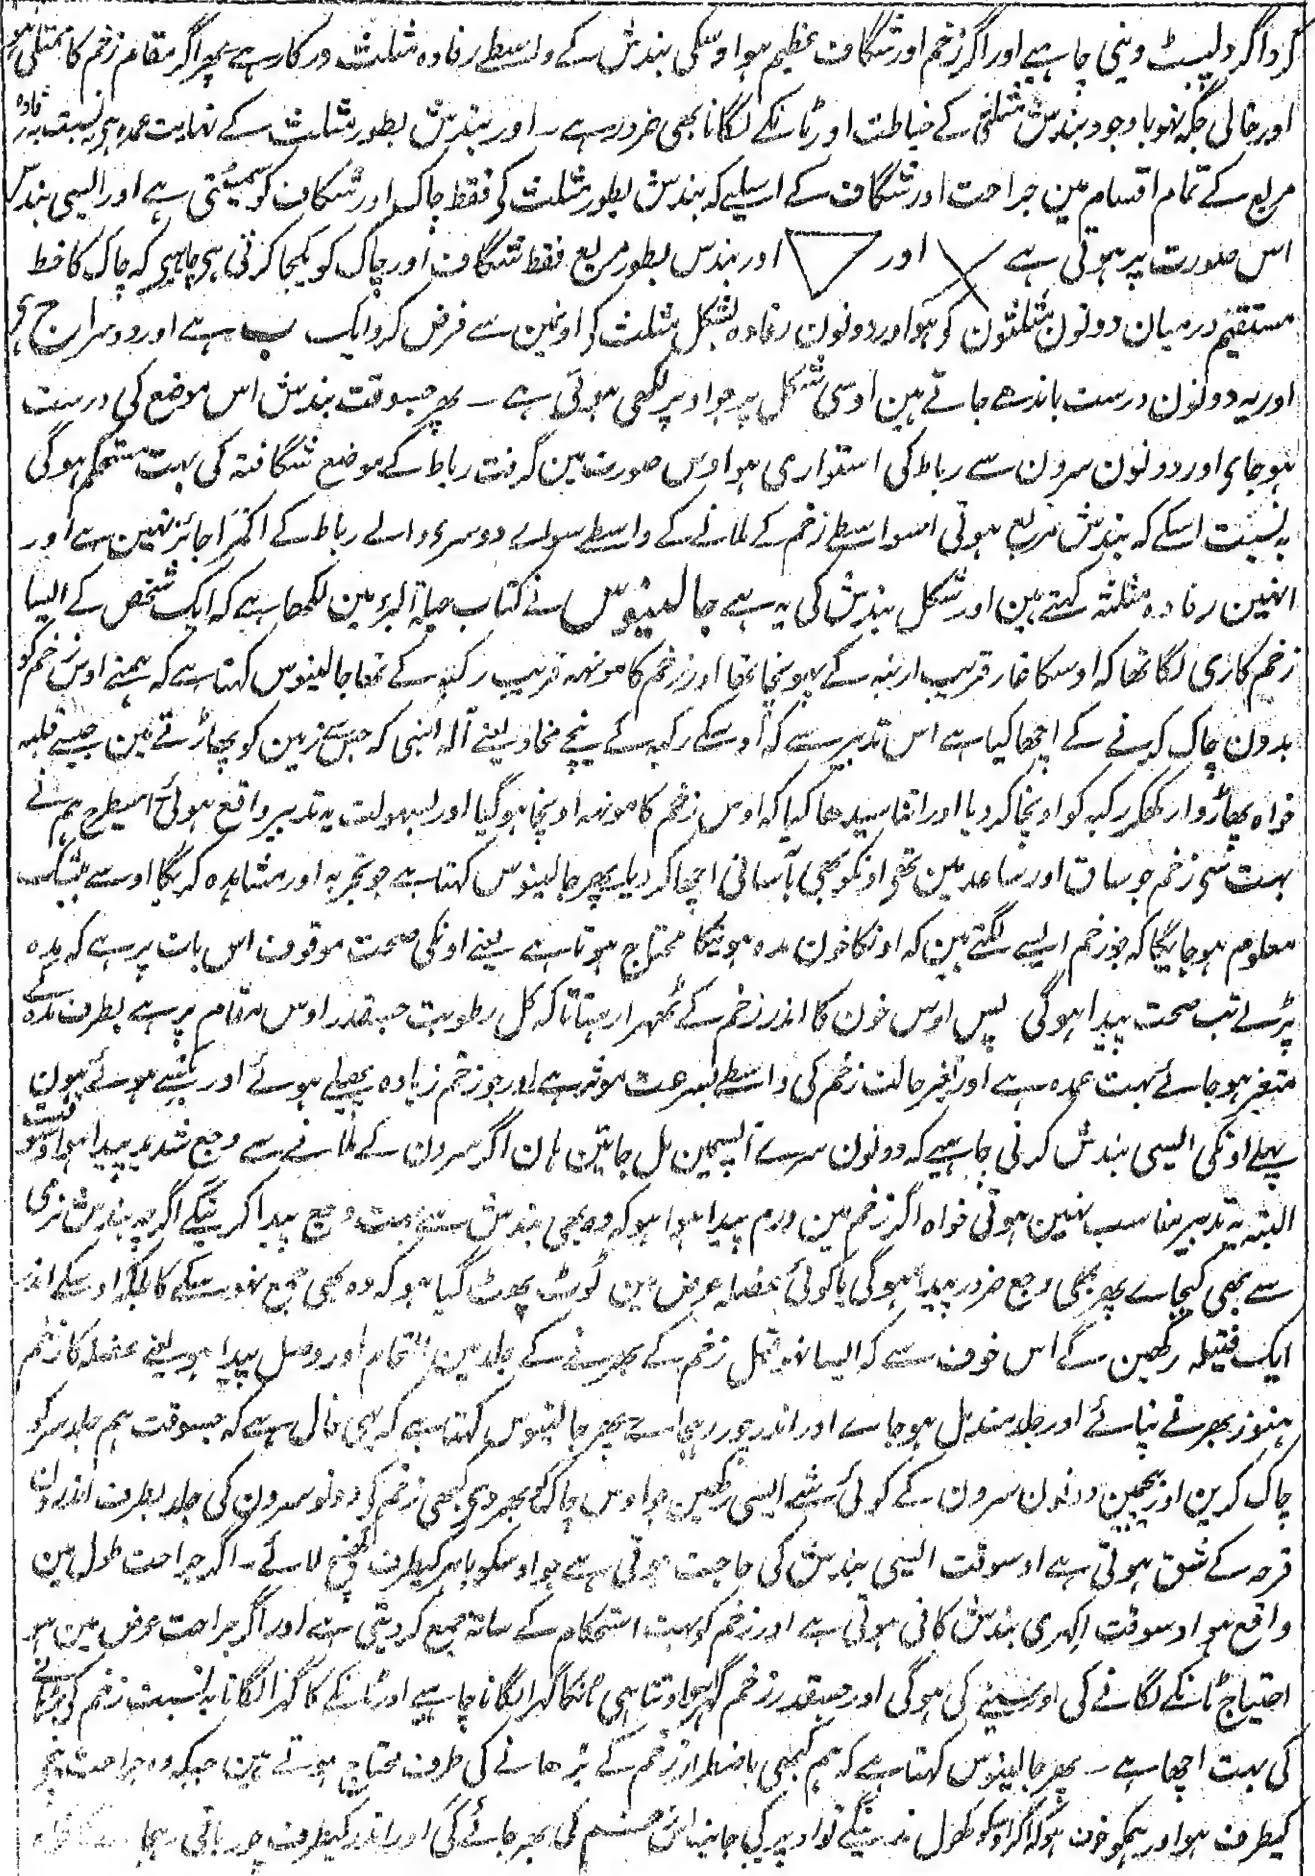 گرداگرد لپیٹ دینی چاہیے اور اگر زخم اور شگاف عظیم ہو اوسکی بندش کے واسطے رفادہ مثلث درکار ہے پھر اگر مقام زخم کا ممتلی ہو
اور خالی جگہ نہو باوجود بندش مثلثی کے خیاطت اور ٹانکے لگانا بھی ضرور ہے ۔ اور بندش بطور مثلث کے نہایت عمدہ ہی بہ نسبت رفادہ
مربع کے تمام اقسام مین جراحت اور شگاف کے اسلیے کہ بندش بطور مثلث کی فقط چاک اور شگاف کو سمیٹتی ہے اور ایسی بندش
اس صورت پر ہوتی ہے اور اور بندش بطور مربع فقط شگاف اور چاک کو یکجا کرتی ہی چاہیی کہ چاک کا خط
مستقیم درمیان دونون مثلثون کو ہو اور دونون رفادہ بشکل مثلث کو اونمین سے فرض کرو ایک ب ہے اور دوسرا ج ہی
اور یہ دونون درست باندھے جاتے ہین اوسی شکل پر جو اوپر لکھی ہوئی ہے ۔ پھر جسوقت بندش اس موضع کی درست
ہو جای اور دونون سرون سے رباط کی استواری ہو اوس صورت مین گرفت رباط کے موضع شگافتہ کی بہت مستحکم ہوگی
بہ نسبت اسکے کہ بندش مربع ہوتی اسواسطے زخم کے ملانے کے واسطے سواے دوسرے والے رباط کے اکثر جائز نہین ہے اور
انہین رفادہ مثلثہ کہتے ہین اور شکل بندش کی یہ ہے جالینوس نے کتاب حیلۃ البرء مین لکھا ہے کہ ایک شخص کے ایسا
زخم کاری لگا تھا کہ اوسکا غار قریب اربنہ کے پہونچا تھا اور زخم کا مونھہ قریب رکبہ کے تھا جالینوس کہتا ہے کہ ہمنے اوس زخم کو
بدون چاک کرنے کے اچھا کیا ہے اس تدبیر سے کہ اوسکے رکبہ کے نیچے یعنے آلہ کہ جس سے زمین کو پھاڑتے ہین جیسے قلبہ
خواہ پھاڑو ار رکھکر رکبہ کو اونچا کر دیا اور اتنا سیدھا کیا کہ اوس زخم کا مونھہ اونچا ہو گیا اور بسہولت یہ تدبیر واقع ہوئی اسیطرح ہم نے
بہت سی زخم جو ساق اور ساعد مین تھی اونکو بھی بآسانی اچھا کر دیا پھر جالینوس کہتا ہے جو تجربہ اور مشاہدہ کریگا اوسے بیشک
معلوم ہو جائیگا کہ جو زخم ایسے لگتے ہین کہ اونکا خون مدہ ہونیکا محتاج ہوتا ہے یعنے اونکی صحت موقوف اس بات پر ہے کہ مدہ
پڑے تب صحت پیدا ہوگی پس اوس خون کا اندر زخم کے ٹھہرا رہنا تاکہ کل رطوبت جسقدر اوس مقام پر ہے بطرف مدہ کے
متغیر ہو جائے بہت عمدہ ہے اور تغیر حالت زخم کی واسطے بسرعت موثر ہے اور جو زخم زیادہ پھیلے ہوئے اور ہوئے ہون
پہلے اونکی ایسی بندش کرنی چاہیے کہ دونون سرے آپسمین مل جائین ہان اگر سرون کے ملانے سے وجع شدید پیدا ہو اوسوقت
البتہ یہ تدبیر مناسب نہین ہوتی خواہ اگر زخم مین ورم پیدا ہوا ہو کہ وہ بھی بندش سے بہت وجع پیدا کرینگے اگرچہ بندش نرمی
سے بھی کیجاے پھر بھی وجع ضرور پیدا ہوگی یا کوئی عضلہ عرض مین گوٹ پھٹ گیا ہو کہ وہ بھی جمع نہو سکے گا بلکہ اوسکے اندر
ایک فتیلہ رکھین گے اس خوف سے کہ ایسا نہو قبل زخم کے بھرنے کے جلد مین التحام اور وصل پیدا ہو یعنے عضلہ کا زخم
ہنوز بھرنے نپائے اور جلد مندمل ہو جاے اور اندر چور رہجاے پھر جالینوس کہتا ہے کہ یہی حال ہے کہ جسوقت ہم جلد سر کو
چاک کرین اور بیچمین دونون سرون کے کوئی شے ایسی رکھین جو اوس چاک کو بھر دی کبھی زخم کی دونو سرون کی جلد بطرف اندرون
قرحہ کے شق ہوتی ہے اوسوقت ایسی بندش کی حاجت ہوتی ہے جو اوسکو باہر کیطرف کھینچ لائے ۔ اگر جراحت طول مین
واقع ہو اوسوقت اکہری بندش کافی ہوتی ہے اور زخم کو بہت استحکام کے ساتھ جمع کر دیتی ہے اور اگر جراحت عرض مین ہو
احتیاج ٹانکے لگانے کی اور سینے کی ہوگی اور جسقدر زخم گہرا ہو اوتنا ہی ٹانکا گہرا لگانا چاہیے اور ٹانکے کا گہرا لگانا بہ نسبت زخم کی بڑھانے
کی بہت اچھا ہے ۔ پھر جالینوس کہتا ہے کہ ہم کبھی باضطرار زخم کے بڑھانے کی طرف محتاج ہوتے ہین جبکہ وہ جراحت
کیطرف ہو اور ہمکو خوف ہو کہ اگر اوسکو کھول ندینگے تو اوپر کی جانب بھر جائے گی اور اندر کیطرف چور باقی رہجا